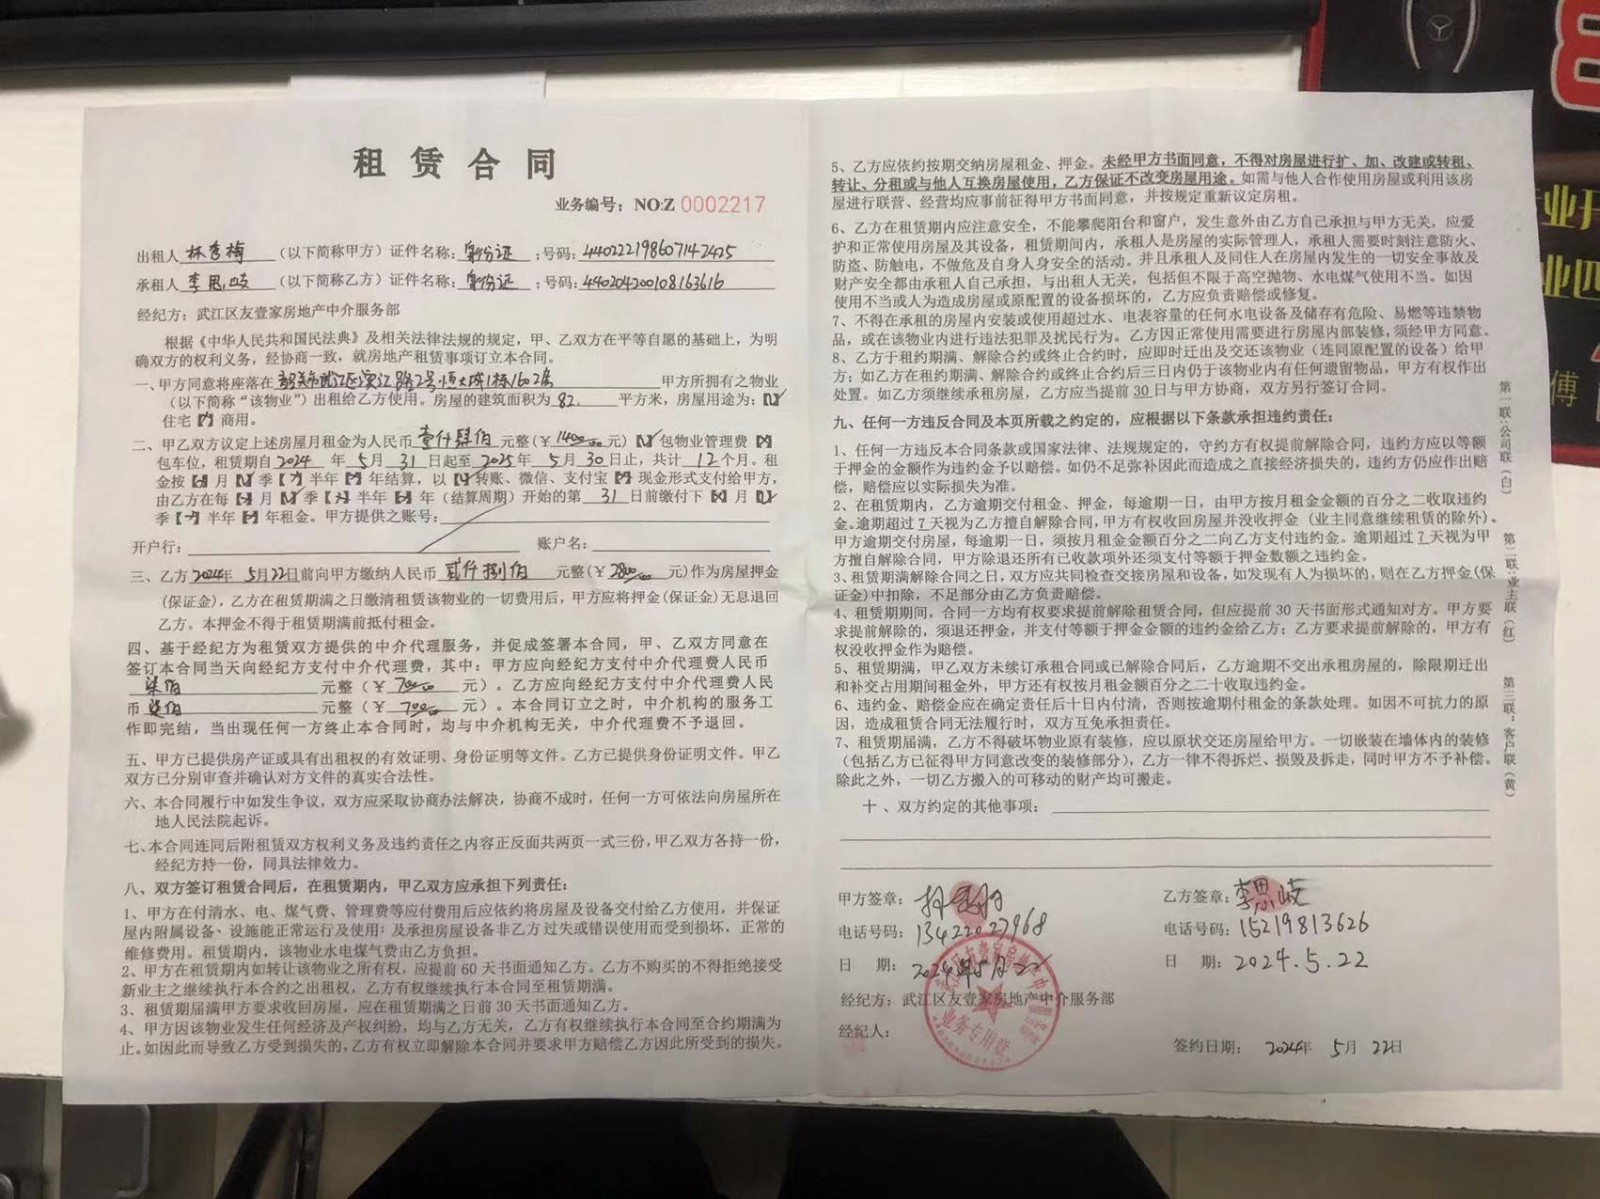 租赁合同
业务编号：NO:Z 0002217
出租人 林秀梅 （以下简称甲方）证件名称：身份证 ；号码：440222198607142425
承租人 李思岐 （以下简称乙方）证件名称：身份证 ；号码：440204200108163616
经纪方：武江区友壹家房地产中介服务部
根据《中华人民共和国民法典》及相关法律法规的规定，甲、乙双方在平等自愿的基础上，为明
确双方的权利义务，经协商一致，就房地产租赁事项订立本合同。
一、甲方同意将座落在 韶关市武江区滨江路2号恒大城1栋1602房 甲方所拥有之物业
（以下简称“该物业”）出租给乙方使用。房屋的建筑面积为 82. 平方米，房屋用途为：【√】
住宅【】商用。
二、甲乙双方议定上述房屋月租金为人民币 壹仟肆佰 元整（￥1400.00元）【√】包物业管理费【】
包车位，租赁期自2024年5月31日起至2025年5月30日止，共计12个月。租
金按【】月【】季【】半年【】年结算，以【】转账、微信、支付宝【】现金形式支付给甲方，
由乙方在每【】月【】季【】半年【】年（结算周期）开始的第31日前缴付下【】月【】
季【】半年【】年租金。甲方提供之账号：
开户行： 账户名：
三、乙方2024年5月22日前向甲方缴纳人民币 贰仟捌佰 元整（￥2800.00元）作为房屋押金
（保证金），乙方在租赁期满之日缴清租赁该物业的一切费用后，甲方应将押金（保证金）无息退回
乙方。本押金不得于租赁期满前抵付租金。
四、基于经纪方为租赁双方提供的中介代理服务，并促成签署本合同，甲、乙双方同意在
签订本合同当天向经纪方支付中介代理费，其中：甲方应向经纪方支付中介代理费人民币
柒佰 元整（￥700.00元）。乙方应向经纪方支付中介代理费人民
币 柒佰 元整（￥700.00元）。本合同订立之时，中介机构的服务工
作即完结，当出现任何一方终止本合同时，均与中介机构无关，中介代理费不予退回。
五、甲方已提供房产证或具有出租权的有效证明、身份证明等文件。乙方已提供身份证明文件。甲乙
双方已分别审查并确认对方文件的真实合法性。
六、本合同履行中如发生争议，双方应采取协商办法解决，协商不成时，任何一方可依法向房屋所在
地人民法院起诉。
七、本合同连同后附租赁双方权利义务及违约责任之内容正反面共两页一式三份，甲乙双方各持一份，
经纪方持一份，同具法律效力。
八、双方签订租赁合同后，在租赁期内，甲乙双方应承担下列责任：
1、甲方在付清水、电、煤气费、管理费等应付费用后应依约将房屋及设备交付给乙方使用，并保证
屋内附属设备、设施能正常运行及使用；及承担房屋设备非乙方过失或错误使用而受到损坏，正常的
维修费用。租赁期内，该物业水电煤气费由乙方负担。
2、甲方在租赁期内如转让该物业之所有权，应提前60天书面通知乙方。乙方不购买的不得拒绝接受
新业主之继续执行本合约之出租权，乙方有权继续执行本合同至租赁期满。
3、租赁期届满甲方要求收回房屋，应在租赁期满之日前30天书面通知乙方。
4、甲方因该物业发生任何经济及产权纠纷，均与乙方无关，乙方有权继续执行本合同至合约期满为
止。如因此而导致乙方受到损失的，乙方有权立即解除本合同并要求甲方赔偿乙方因此所受到的损失。
5、乙方应依约按期交纳房屋租金、押金。未经甲方书面同意，不得对房屋进行扩、加、改建或转租、
转让、分租或与他人互换房屋使用，乙方保证不改变房屋用途。如需与他人合作使用房屋或利用该房
屋进行联营、经营均应事前征得甲方书面同意，并按规定重新议定房租。
6、乙方在租赁期内应注意安全，不能攀爬阳台和窗户，发生意外由乙方自己承担与甲方无关，应爱
护和正常使用房屋及其设备，租赁期间内，承租人是房屋的实际管理人，承租人需要时刻注意防火、
防盗、防触电，不做危及自身人身安全的活动。并且承租人及同住人在房屋内发生的一切安全事故及
财产安全都由承租人自己承担，与出租人无关，包括但不限于高空抛物、水电煤气使用不当。如因
使用不当或人为造成房屋或原配置的设备损坏的，乙方应负责赔偿或修复。
7、不得在承租的房屋内安装或使用超过水、电表容量的任何水电设备及储存有危险、易燃等违禁物
品，或在该物业内进行违法犯罪及扰民行为。乙方因正常使用需要进行房屋内部装修，须经甲方同意。
8、乙方于租约期满、解除合约或终止合约时，应即时迁出及交还该物业（连同原配置的设备）给甲
方；如乙方在租约期满、解除合约或终止合约后三日内仍于该物业内有任何遗留物品，甲方有权作出
处置。如乙方须继续承租房屋，乙方应当提前30日与甲方协商，双方另行签订合同。
九、任何一方违反合同及本页所载之约定的，应根据以下条款承担违约责任：
1、任何一方违反本合同条款或国家法律、法规规定的，守约方有权提前解除合同，违约方应以等额
于押金的金额作为违约金予以赔偿。如仍不足弥补因此而造成之直接经济损失的，违约方仍应作出赔
偿，赔偿应以实际损失为准。
2、在租赁期内，乙方逾期交付租金、押金，每逾期一日，由甲方按月租金金额的百分之二收取违约
金。逾期超过7天视为乙方擅自解除合同，甲方有权收回房屋并没收押金（业主同意继续租赁的除外）。
甲方逾期交付房屋，每逾期一日，须按月租金金额百分之二向乙方支付违约金。逾期超过7天视为甲
方擅自解除合同，甲方除退还所有已收款项外还须支付等额于押金数额之违约金。
3、租赁期满解除合同之日，双方应共同检查交接房屋和设备，如发现有人为损坏的，则在乙方押金（保
证金）中扣除，不足部分由乙方负责赔偿。
4、租赁期期间，合同一方均有权要求提前解除租赁合同，但应提前30天书面形式通知对方。甲方要
求提前解除的，须退还押金，并支付等额于押金金额的违约金给乙方；乙方要求提前解除的，甲方有
权没收押金作为赔偿。
5、租赁期满，甲乙双方未续订承租合同或已解除合同后，乙方逾期不交出承租房屋的，除限期迁出
和补交占用期间租金外，甲方还有权按月租金额百分之二十收取违约金。
6、违约金、赔偿金应在确定责任后十日内付清，否则按逾期付租金的条款处理。如因不可抗力的原
因，造成租赁合同无法履行时，双方互免承担责任。
7、租赁期届满，乙方不得破坏物业原有装修，应以原状交还房屋给甲方。一切嵌装在墙体内的装修
（包括乙方已征得甲方同意改变的装修部分），乙方一律不得拆烂、损毁及拆走，同时甲方不予补偿。
除此之外，一切乙方搬入的可移动的财产均可搬走。
十、双方约定的其他事项：
甲方签章：林秀梅
电话号码：13422027968
日 期：2024年5月22
经纪方：武江区友壹家房地产中介服务部
经纪人：
乙方签章：李思岐
电话号码：15219813626
日 期：2024.5.22
签约日期： 2024年 5月 22日
武江区友壹家房地产中介服务部
业务专用章
第一联：公司联（白）
第二联：业主联（红）
第三联：客户联（黄）
8
业
业四
傅